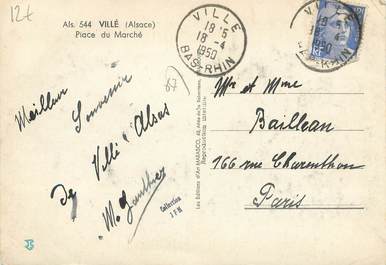 12t
Als. 544 VILLÉ (Alsace)
Place du Marché
VILLE
18 h 5
18 - 4
1950
BAS-RHIN
VILLE
18
1950
BAS-RHIN
67
Meilleur
Souvenir
De Villé Alsas
M. Gauthier
Collection
Reproduction interdite
Mr et Mme
Bailleau
166 rue Charenthon
Paris